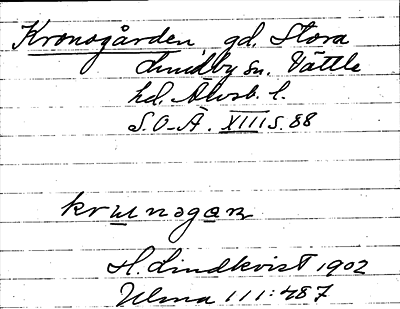 Kronogården gd. Stora
Lundby sn. Vättle
hd. Älvsb. l.
S.O.Ä. XIII s. 88
krunogan
H. Lindkvist 1902
Ulma 111:487